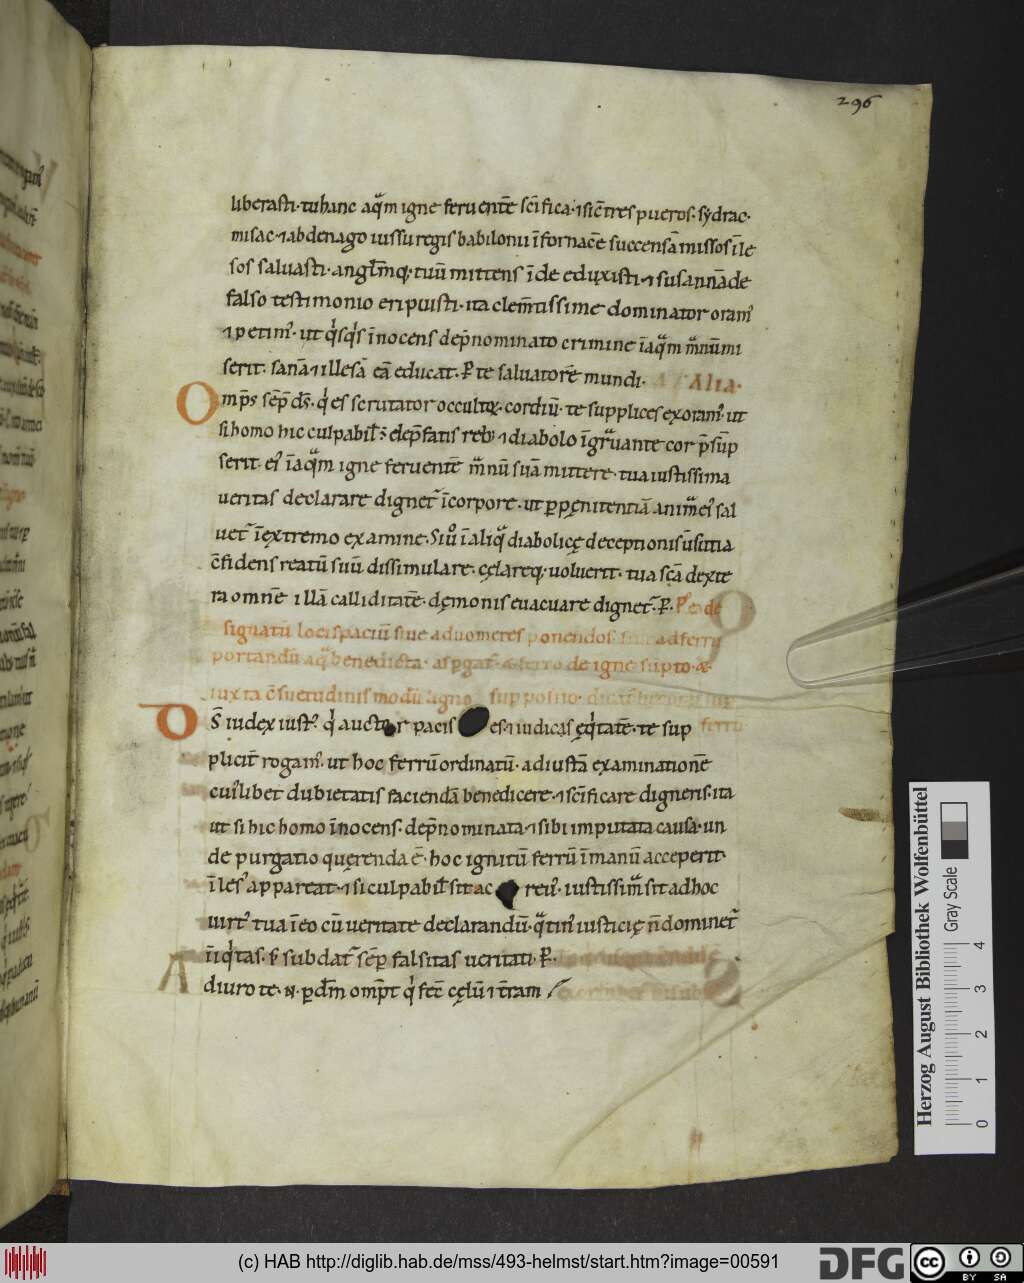 296
liberasti· tu hanc aq̃m igne feruentē sc̄ifica· ⁊ sic̄ tres pueros· sydrac·
misac· ⁊ abdenago iussu regis babilonii ī fornacē succensā missos ille
sos saluasti· angłm̄q; tuū mittens īde eduxisti· ⁊ susannā de
falso testimonio eripuisti· ita clem̄tissime dominator oram᾽
⁊ petim᾽· ut q̇sq̇s īnocens dep̄nominato crimine ī aq̃m m̃nū mi
serit· sanā ⁊ illesā eā educat· P̄ te saluatorē mundi· Alia·
Omp̄s sēp̄ ds̄· q̇ es scrutator occultoꝝ cordiū· te supplices exoram᾽ ut
si homo hic culpabił᾽s ⁊ diabolo īg̃uante cor p̄sūp
serit· ei᾽ ī aq̃m igne feruentē m̃nū suā mittere· tua iustissima
ueritas declarare dignet᾽ ī corpore· ut ꝑ pęnitentiā anim̄ ei᾽ sal
uet᾽ ī extremo examine· Siū᾽ ī aliq̃ diabolicę deceptionis ūsutia
c̄fidens reatū suū dissimulare· cęlareq; uoluerit· tua sc̄a dexte
ra omnē illā calliditatē· dęmonis euacuare dignet᾽· P̄·
signatū loci spaciū siue ad uomeres ponendos· ad ferrū
portandū aq̃ benedicta· aspgat᾽ ferro de igne supto·
iuxta c̄suetudinis modū igne supposito·
Ds̄ iudex iust᾽· q̇ auctor pacis es· ⁊ iudicas ęq̇tatē· te sup
plicit᾽ rogam᾽· ut hoc ferrū ordinatū· ad iustā examinationē
cui᾽libet dubietatis faciendā benedicere· ⁊ sc̄ificare digneris· ita
ut si hic homo īnocens· dep̄nominata ⁊ sibi imputata causa· un
de purgatio querenda ē· hoc ignitū ferrū ī manū acceperit·
īles᾽ appareat· ⁊ si culpabił sit ac re᾽· iustissim̄ sit ad hoc
uirt᾽ tua ī eo cū ueritate declarandū· q̃tin᾽ iusticię n̄ dominet᾽
īiq̇tas· s; subdat᾽ sēp falsitas ueritati· P̄·
Adiuro te· N· ꝑ dm̄ omp̄t q̇ fec̄ cęlū ⁊ t̄ram
Herzog August Bibliothek Wolfenbüttel
Gray Scale
0 1 2 3 4
(c) HAB http://diglib.hab.de/mss/493-helmst/start.htm?image=00591
DFG
cc BY SA